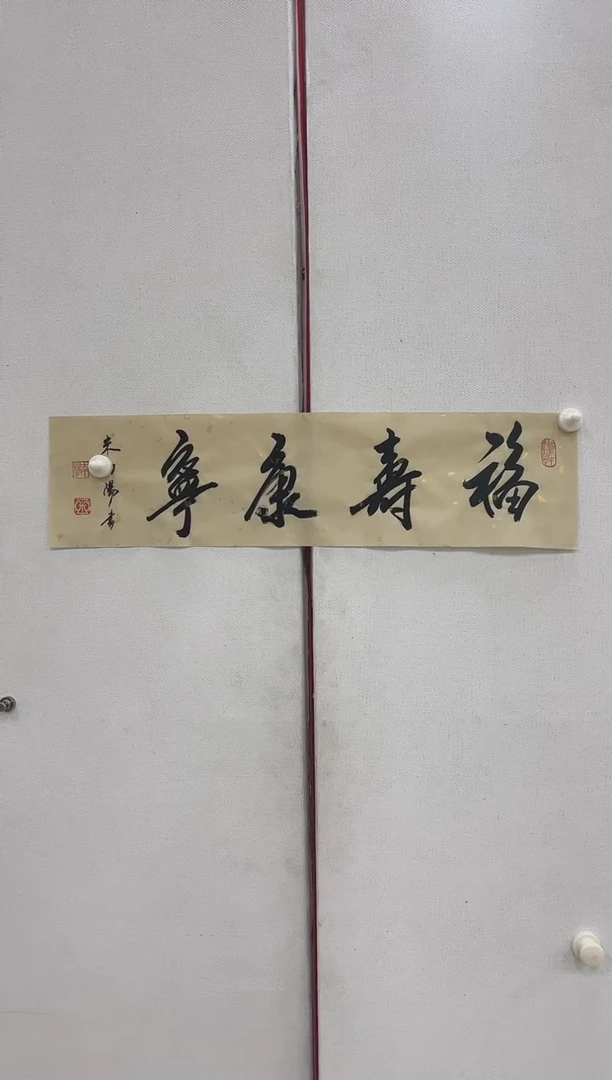 福壽康寧
陽書